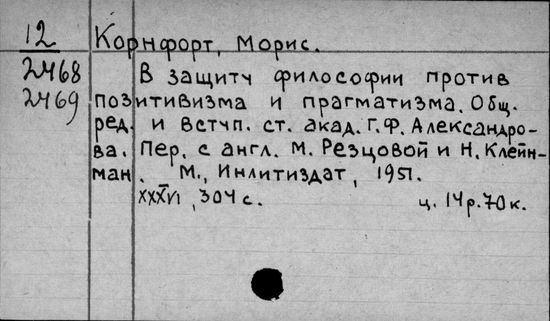 12 Корнфорт, Морис.
2468 В защиту философии против
2469 позитивизма и прагматизма. Общ.
ред. и вступ. ст. акад. Г.Ф. Александро-
ва. Пер. с англ. М. Резцовой и Н. Клейн-
ман. М., Инлитиздат, 1951.
XXXVI, 304 с. ц. 14р.70к.